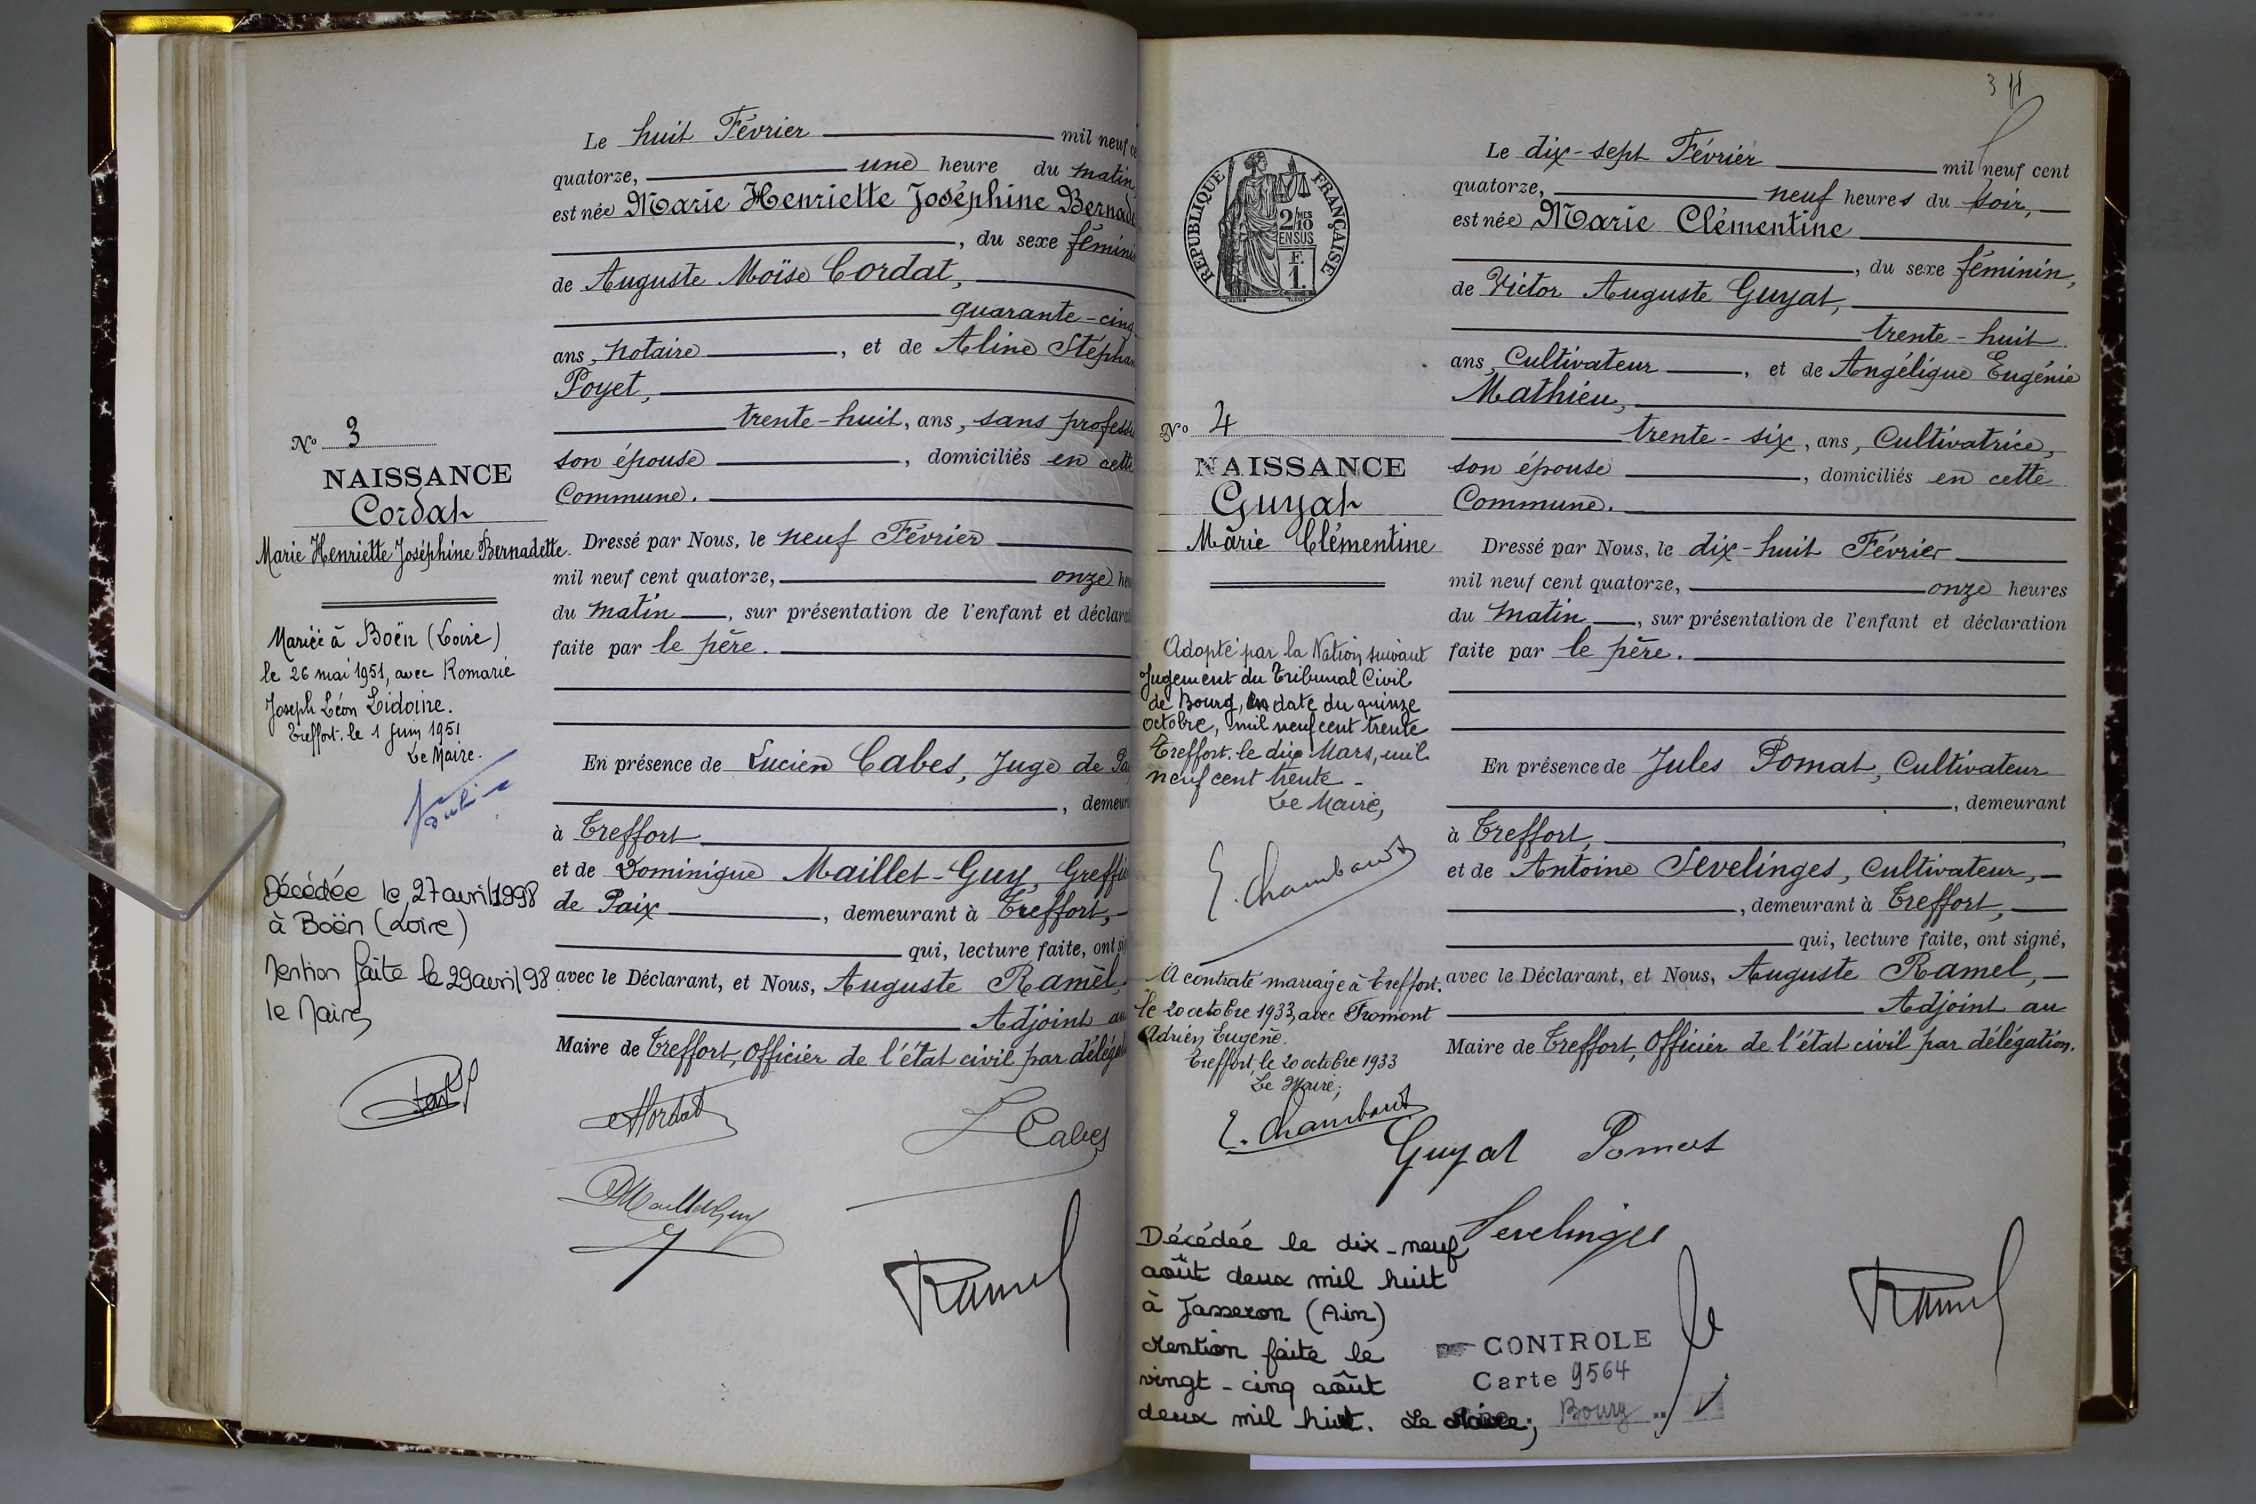 Le huit Février mil neuf ce
quatorze, une heure du matin
est née Marie Henriette Joséphine Bernade
, du sexe fémini
de Auguste Moïse Cordat,
quarante-cinq
ans, notaire, et de Aline Stéphan
Poyet,
trente-huit, ans, sans profess
son épouse, domiciliés en cette
Commune.
Dressé par Nous, le neuf Février
mil neuf cent quatorze, onze heu
du matin, sur présentation de l'enfant et déclara
faite par le père.
En présence de Lucien Cabes, Juge de Pa
, demeur
à Treffort
et de Dominique Maillet-Guy, Greffie
de Paix, demeurant à Treffort,
qui, lecture faite, ont si
avec le Déclarant, et Nous, Auguste Ramel,
Adjoint au
Maire de Treffort, Officier de l'état civil par déléga
L Cabes
Ramel
No 3
NAISSANCE
Cordat
Marie Henriette Joséphine Bernadette.
Mariée à Boën (Loire)
le 26 mai 1951, avec Romarie
Joseph Léon Lidoine.
Treffort. le 1 Juin 1951
Le Maire.
Décédée le 27 avril 1998
à Boën (Loire)
Mention faite le 29 avril 98
le Maire
3
RÉPUBLIQUE FRANÇAISE
2/10MES
EN SUS
F.
1.
Le dix-sept Février mil neuf cent
quatorze, neuf heures du soir,
est née Marie Clémentine
, du sexe féminin,
de Victor Auguste Guyat,
trente-huit
ans, Cultivateur, et de Angélique Eugénie
Mathieu,
trente-six, ans, Cultivatrice,
son épouse, domiciliés en cette
Commune.
Dressé par Nous, le dix-huit Février
mil neuf cent quatorze, onze heures
du matin, sur présentation de l'enfant et déclaration
faite par le père.
En présence de Jules Pomat, Cultivateur
, demeurant
à Treffort,
et de Antoine Sevelinges, Cultivateur,
, demeurant à Treffort,
qui, lecture faite, ont signé,
avec le Déclarant, et Nous, Auguste Ramel,
Adjoint au
Maire de Treffort, Officier de l'état civil par délégation.
Guyat Pomat
Sevelinges
Ramel
No 4
NAISSANCE
Guyat
Marie Clémentine
Adopté par la Nation suivant
Jugement du Tribunal Civil
de Bourg, en date du quinze
octobre, mil neuf cent trente
Treffort. le dix Mars, mil
neuf cent trente -
Le Maire,
E. Chambard
A contracté mariage à Treffort.
le 20 octobre 1933, avec Fromont
Adrien Eugène.
Treffort, le 20 octobre 1933
Le Maire,
E. Chambard
Décédée le dix-neuf
août deux mil huit
à Jasseron (Ain)
Mention faite le
vingt-cinq août
deux mil huit. Le Maire,
CONTROLE
Carte 9564
Bourg